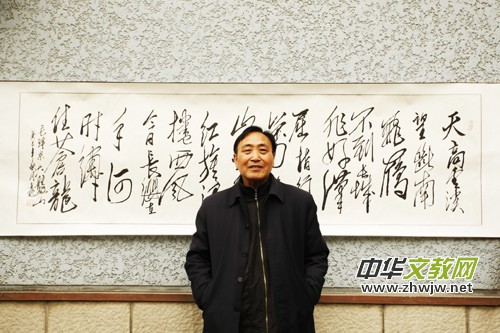 天高雲淡
望斷南
飛雁
不到長城
非好漢
屈指行
紅旗漫
捲西風
今日長纓在
手何
時縛
住蒼龍
中华文教网
www.zhwjw.net